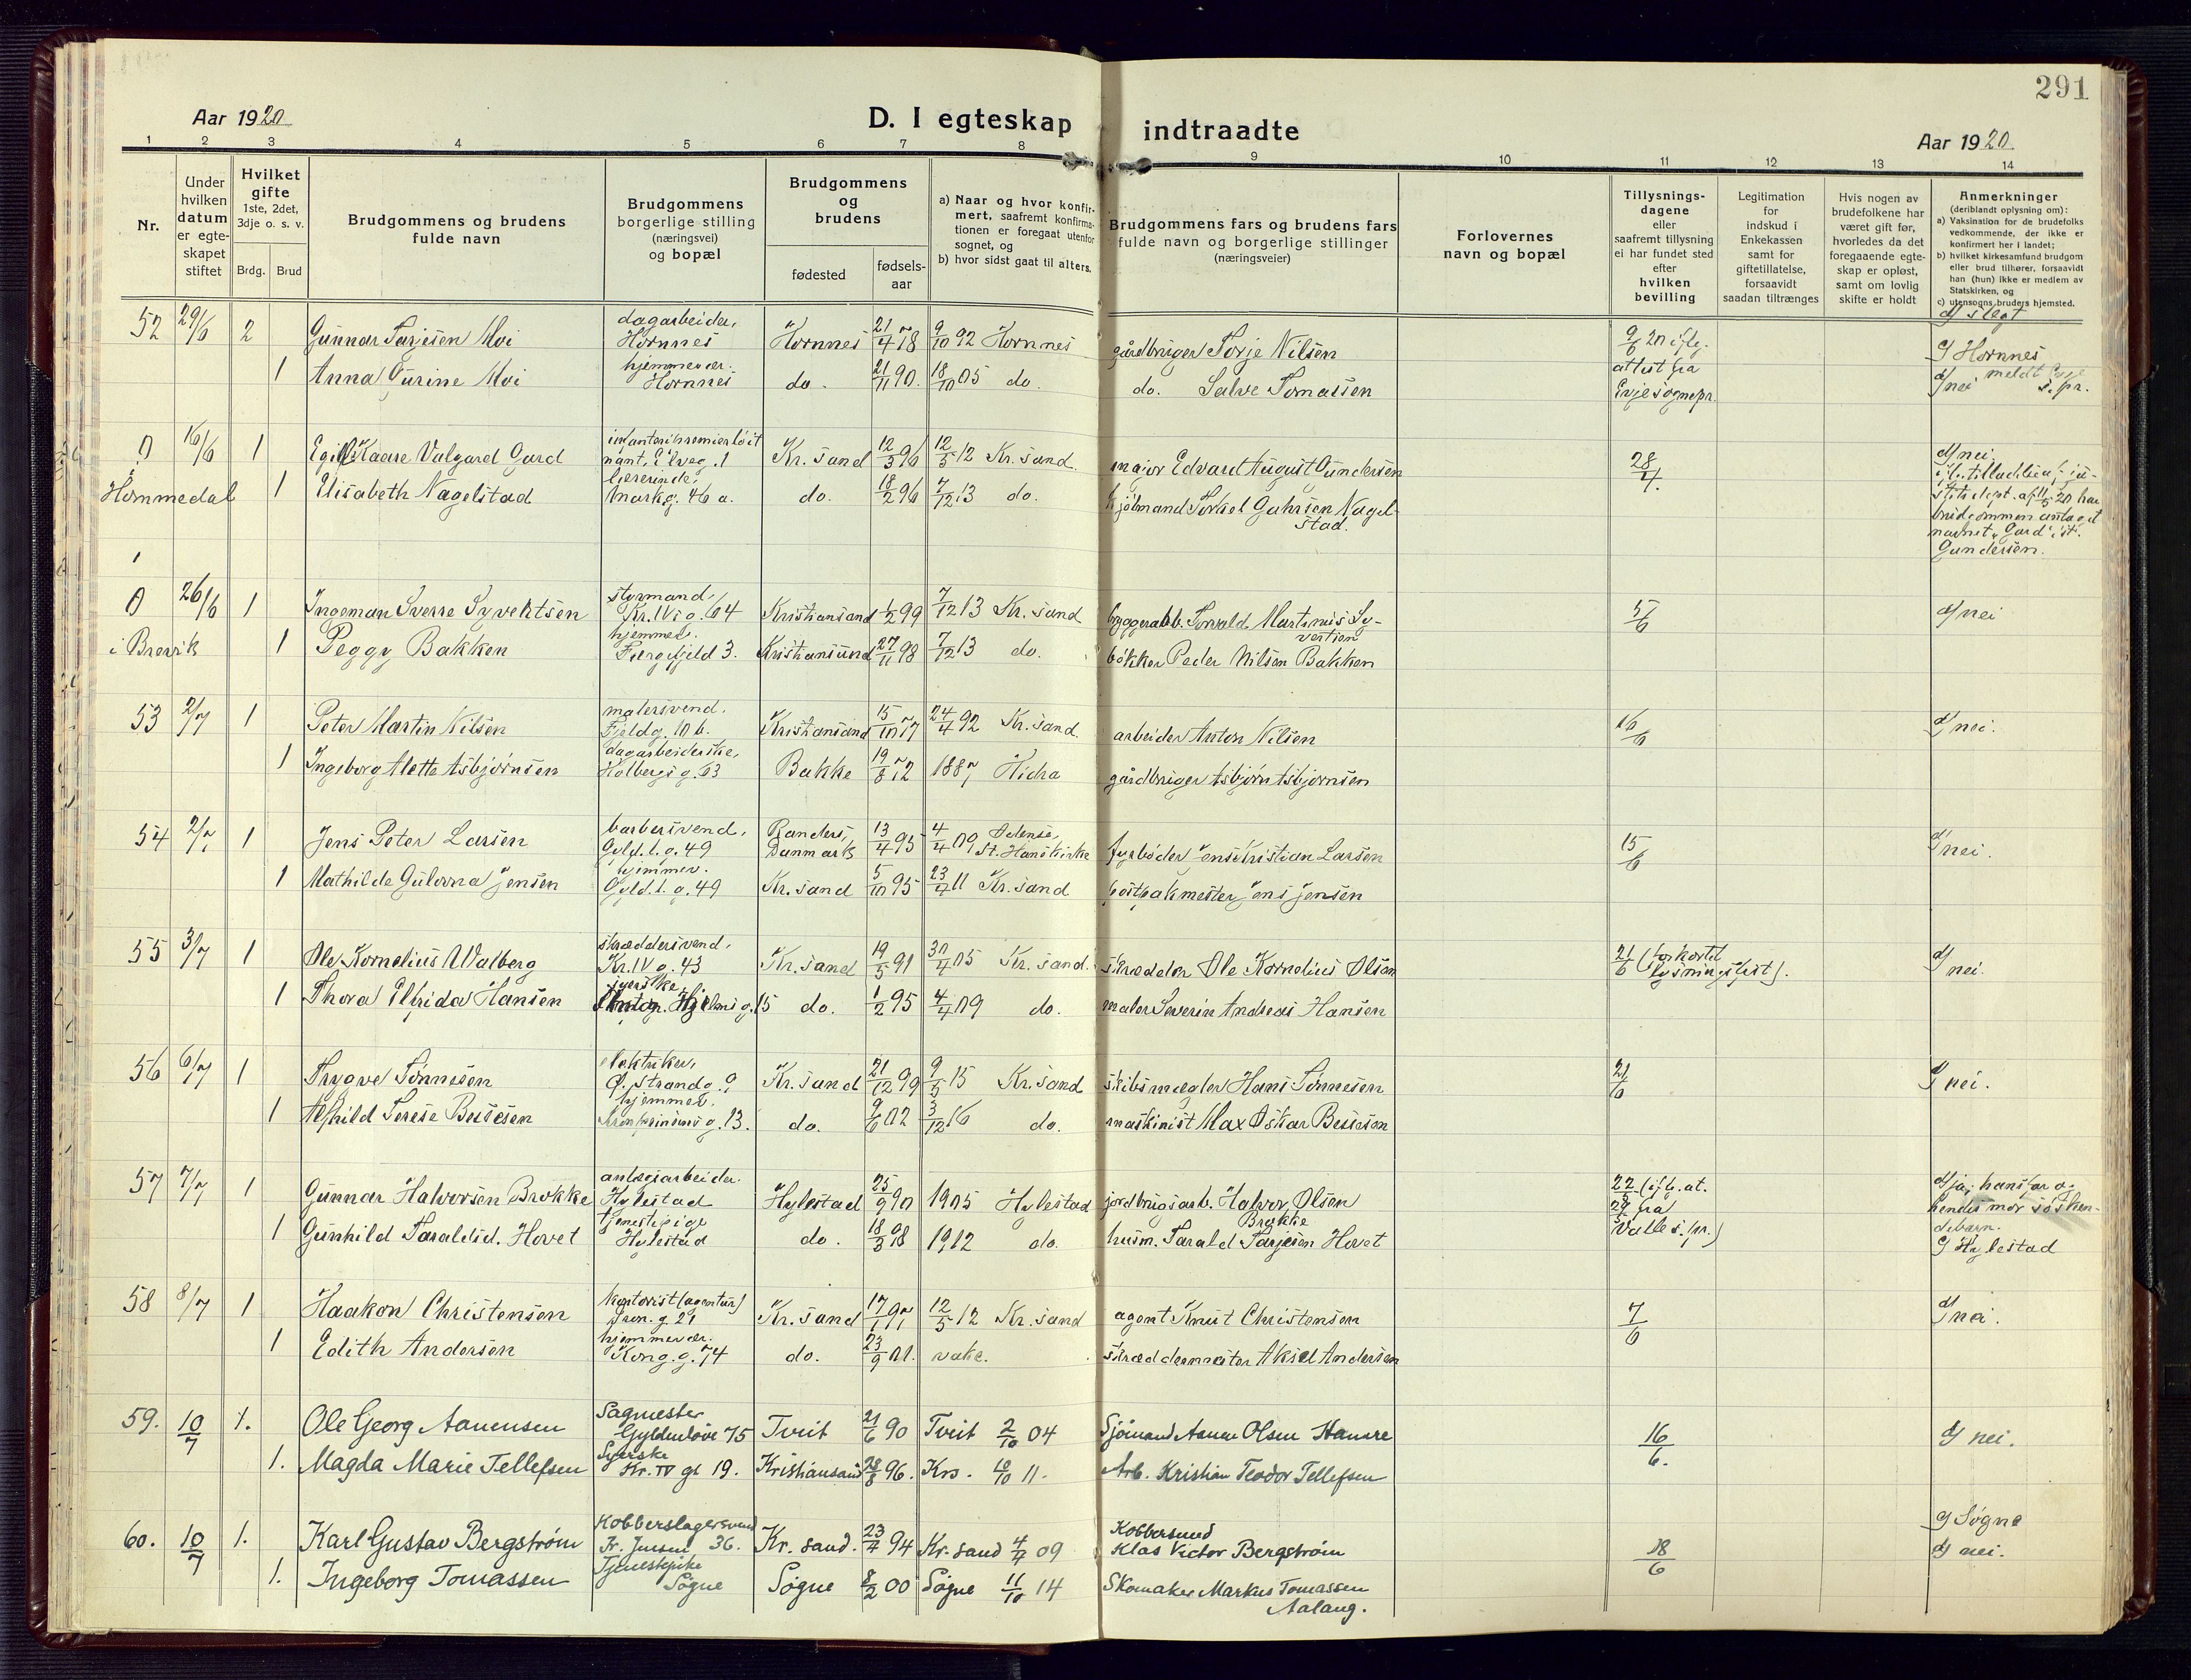 291
Aar 1920
D. I egteskap indtraadte
Aar 1920
1 2 3 4 5 6 7 8 9 10 11 12 13 14
Nr.
Under hvilken datum er egteskapet stiftet
Hvilket gifte 1ste, 2det, 3dje o. s. v.
Brdg. Brud
Brudgommens og brudens fulde navn
Brudgommens borgerlige stilling (næringsvei) og bopæl
Brudgommens og brudens
fødested
fødselsaar
a) Naar og hvor konfirmert, saafremt konfirmationen er foregaat utenfor sognet, og
b) hvor sidst gaat til alters.
Brudgommens fars og brudens fars fulde navn og borgerlige stillinger (næringsveier)
Forlovernes navn og bopæl
Tillysningsdagene eller saafremt tillysning ei har fundet sted efter hvilken bevilling
Legitimation for indskud i Enkekassen samt for giftetillatelse, forsaavidt saadan tiltrænges
Hvis nogen av brudefolkene har været gift før, hvorledes da det foregaaende egteskap er opløst, samt om lovlig skifte er holdt
Anmerkninger (deriblandt oplysning om):
a) Vaksination for de brudefolks vedkommende, der ikke er konfirmert her i landet;
b) hvilket kirkesamfund brudgom eller brud tilhører, forsaavidt han (hun) ikke er medlem av Statskirken, og
c) utensogns bruders hjemsted.
d) slegt
52 29/6 2 Gunnar Tarjesen Moi dagarbeider, Hornnes Hornnes 21/4 78 9/10 92 Hornnes gårdbruger Torje Nilsen 9/6 20 iflg. attest fra Evje sognepr. c) Hornnes
1 Anna Gurine Moi hjemmevær. Hornnes do. 21/11 90. 18/10 05 do. do. Salve Tomassen d) nei meldt Evje s.pr.
0 16/6 1 Egil Kaare Valgard Gard infanteripremierløitnant, Elveg. 1 Kr.sand 12/3 96 12/5 12 Kr.sand. major Edvard August Gundersen 28/4. d) nei.
Hommedal 1 Elisabeth Nagelstad lærerinde, Markg. 46 a. do. 18/2 96 7/12 13 do. Torkel Nagelstad. justitsdept. af 11/5 20 har brudgommen antaget navnet "Gard" ist. Gundersen.
0 26/6 1 Ingeman Sverre Syvertsen styrmand, Kr.IVsg. 64 Kristiansand 1/2 99 7/12 13 Kr.sand byggerabb. Torvald Martinius Syvertsen 5/6 d) nei
i Brevik 1 Peggy Bakken hjemmev. Fiergefjeld 3. Kristiansund 27/11 98 7/12 13 do. bøkker Peder Nilsen Bakken
53 2/7 1 Peter Martin Nilsen malersvend. Fjeldg. 10 b. Kristiansand 15/10 77 24/4 92 Kr.sand. arbeider Anton Nilsen 16/6 d) nei.
1 Ingeborg Alette Asbjørnsen dagarbeiderske, Holbergsg. 63 Bakke 19/8 72 1887 Hidra gårdbruger Asbjørn Asbjørnsen
54 2/7 1 Jens Peter Larsen barbersvend, Gyld.l.g. 49 Randers, Danmark 13/4 95 4/4 09 Odense, St. Hans kirke fyrbøder Jens Kristian Larsen 15/6 d) nei.
1 Mathilde Gulovna Jensen hjemmev. Gyld.l.g. 49 Kr.sand 5/10 95 23/4 11 Kr.sand postpakmester Jens Jensen
55 3/7 1 Ole Kornelius Walberg skræddersvend, Kr.IVg. 43 Kr.sand 19/5 91 30/4 05 Kr.sand. skrædder Ole Kornelius Olsen 21/6 (forkortet lysningsfrist). d) nei.
1 Thora Elfrida Hansen syerske, 15 do. 1/2 95 4/4 09 do. maler Severin Andreas Hansen
56 6/7 1 Trygve Tønnesen elektriker, Ø. Strandg. 9 Kr.sand 21/12 99 9/5 15 Kr.sand skibsmægler Hans Tønnesen 21/6 d) nei.
1 Alfhild Terese Bessesen hjemmev. Kronprinsensg. 13. do. 9/6 02 3/12 16 do. maskinist Max Oskar Bessesen
57 7/7 1 Gunnar Halvorsen Brokke anlægsarbeider. Hylestad Hylestad 25/9 90 1905 Hylestad jordbrugsarb. Halvor Olsen Brokke 22/6 (iflg. at. 29/6 fra Valle s.pr.) d) ja, hans far og hendes mor søskendebarn.
1 Gunhild Taraldsd. Hovet tjenestepige Hylestad do. 18/3 98 1912 do. husm. Tarald Tarjesen Hovet c) Hylestad
58 8/7 1 Haakon Christensen kontorist (agentur) Dron.g. 21 Kr.sand 17/1 97 12/5 12 Kr.sand agent Knut Christensen 7/6 d) nei.
1 Edith Andersen hjemmevær. Kong.g. 74 do. 23/9 01. skræddermester Aksel Andersen
59. 10/7 1. Ole Georg Aanensen Sagmester Gyldenløve 75 Tveit 21/6 90 Tveit 2/10 04 Sjømand Aanen Olsen Hamre 16/6. d) nei.
1. Magda Marie Tellefsen Syerske Kr. IV gt 19. Kristiansand 28/8 96. Krs. 10/10 11. Arb. Kristian Teodor Tellefsen
60. 10/7 1. Karl Gustav Bergstrøm Kobberslagersvend Fr. Jensen 36. Kr. sand. 23/7 94 Kr. sand 4/4 09 Kobbersmed Klas Victor Bergstrøm 18/6 c) Søgne
1. Ingeborg Tomassen Tjenestepike Søgne Søgne 8/2 00 Søgne 11/10 14 Skomaker Markus Tomassen Aalaug. d) nei.